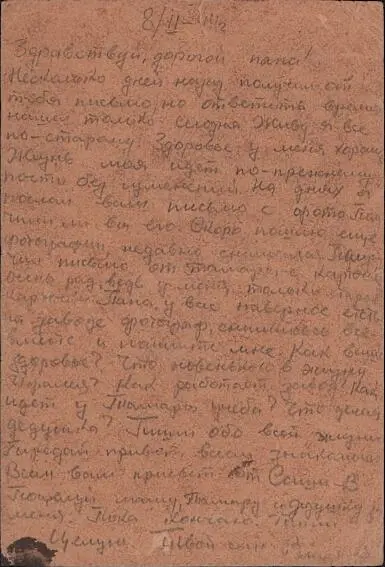 8/II
Здравствуй, дорогой папа!
Несколько дней назад получил от
тебя письмо, но ответить время
нашел только сегодня. Живу я все
по-старому. Здоровье у меня хорош
Жизнь моя идет по-прежнему
почти без изменений. На днях я
послал вам письмо с фото. По
ли вы его. Скоро пошлю еще
фотографии, недавно снимался. Полу
чил письмо от Тамары с карточк
очень рад, ведь у меня только
карточки. Папа у вас наверное есть
на заводе фотограф, снимитесь все
вместе и пошлите мне. Как ваше
здоровье? Что новенького в жизни
Как работает завод. Как
идет у Тамары учеба? Что делает
дедушка? Пиши обо всей жизни
Передай привет всем знакомым
Всем вам привет от Саши В.
Поцелуй маму, Тамару и дедушку за
меня. Пока кончаю. Пиши
Целую. Твой сын